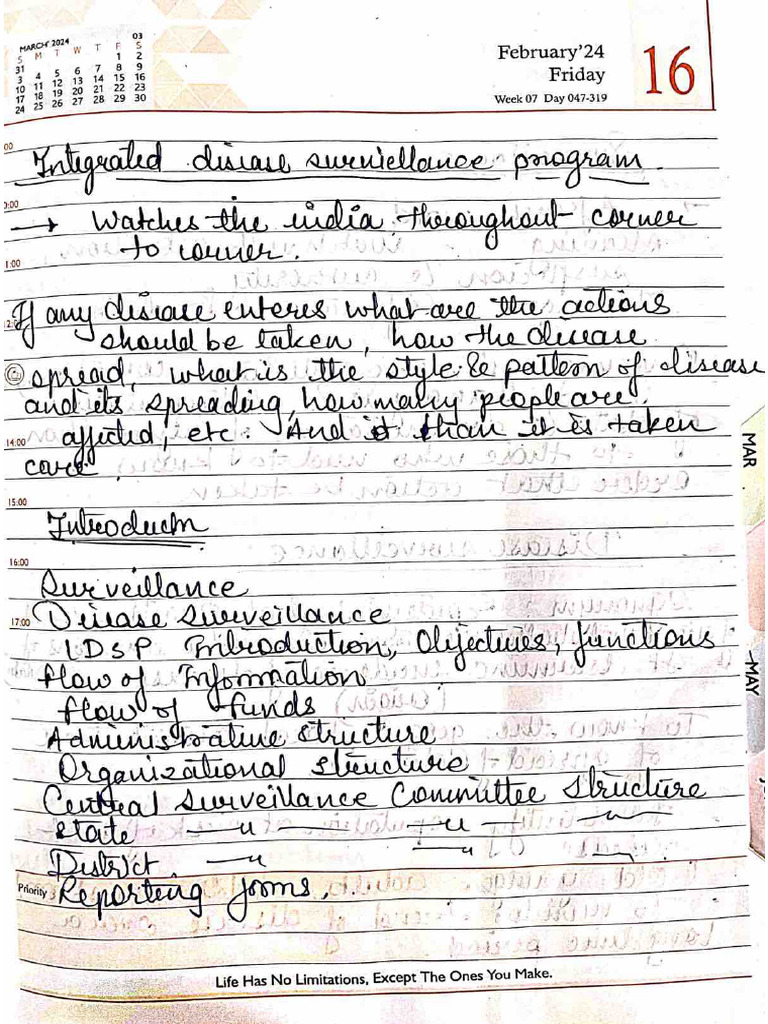 MARCH' 2024
03
S M T W T F S
31 1 2
3 4 5 6 7 8 9
10 11 12 13 14 15 16
17 18 19 20 21 22 23
24 25 26 27 28 29 30
February'24
Friday
Week 07 Day 047-319
16
Integrated disease surviellance program.
→ Watches the india thoroughout corner
to corner.
11:00
If any disease enteres what are the actions
should be taken, how the disease
spread, what is the style & pattern of disease
and its spreading, how many people are
affected, etc. And it than it is taken
14:00
care.
15:00
Introductn
16:00
Surveillance
Disease Surveillance
17:00
IDSP Introduction, Objectives, functions
flow of Information
flow of funds
Administrative structure
Organizational structure
Central Surveillance Committee Structure
State —"— —"— —"—
District —"— —"— —"—
Priority
Reporting forms.
MAR
MAY
Life Has No Limitations, Except The Ones You Make.